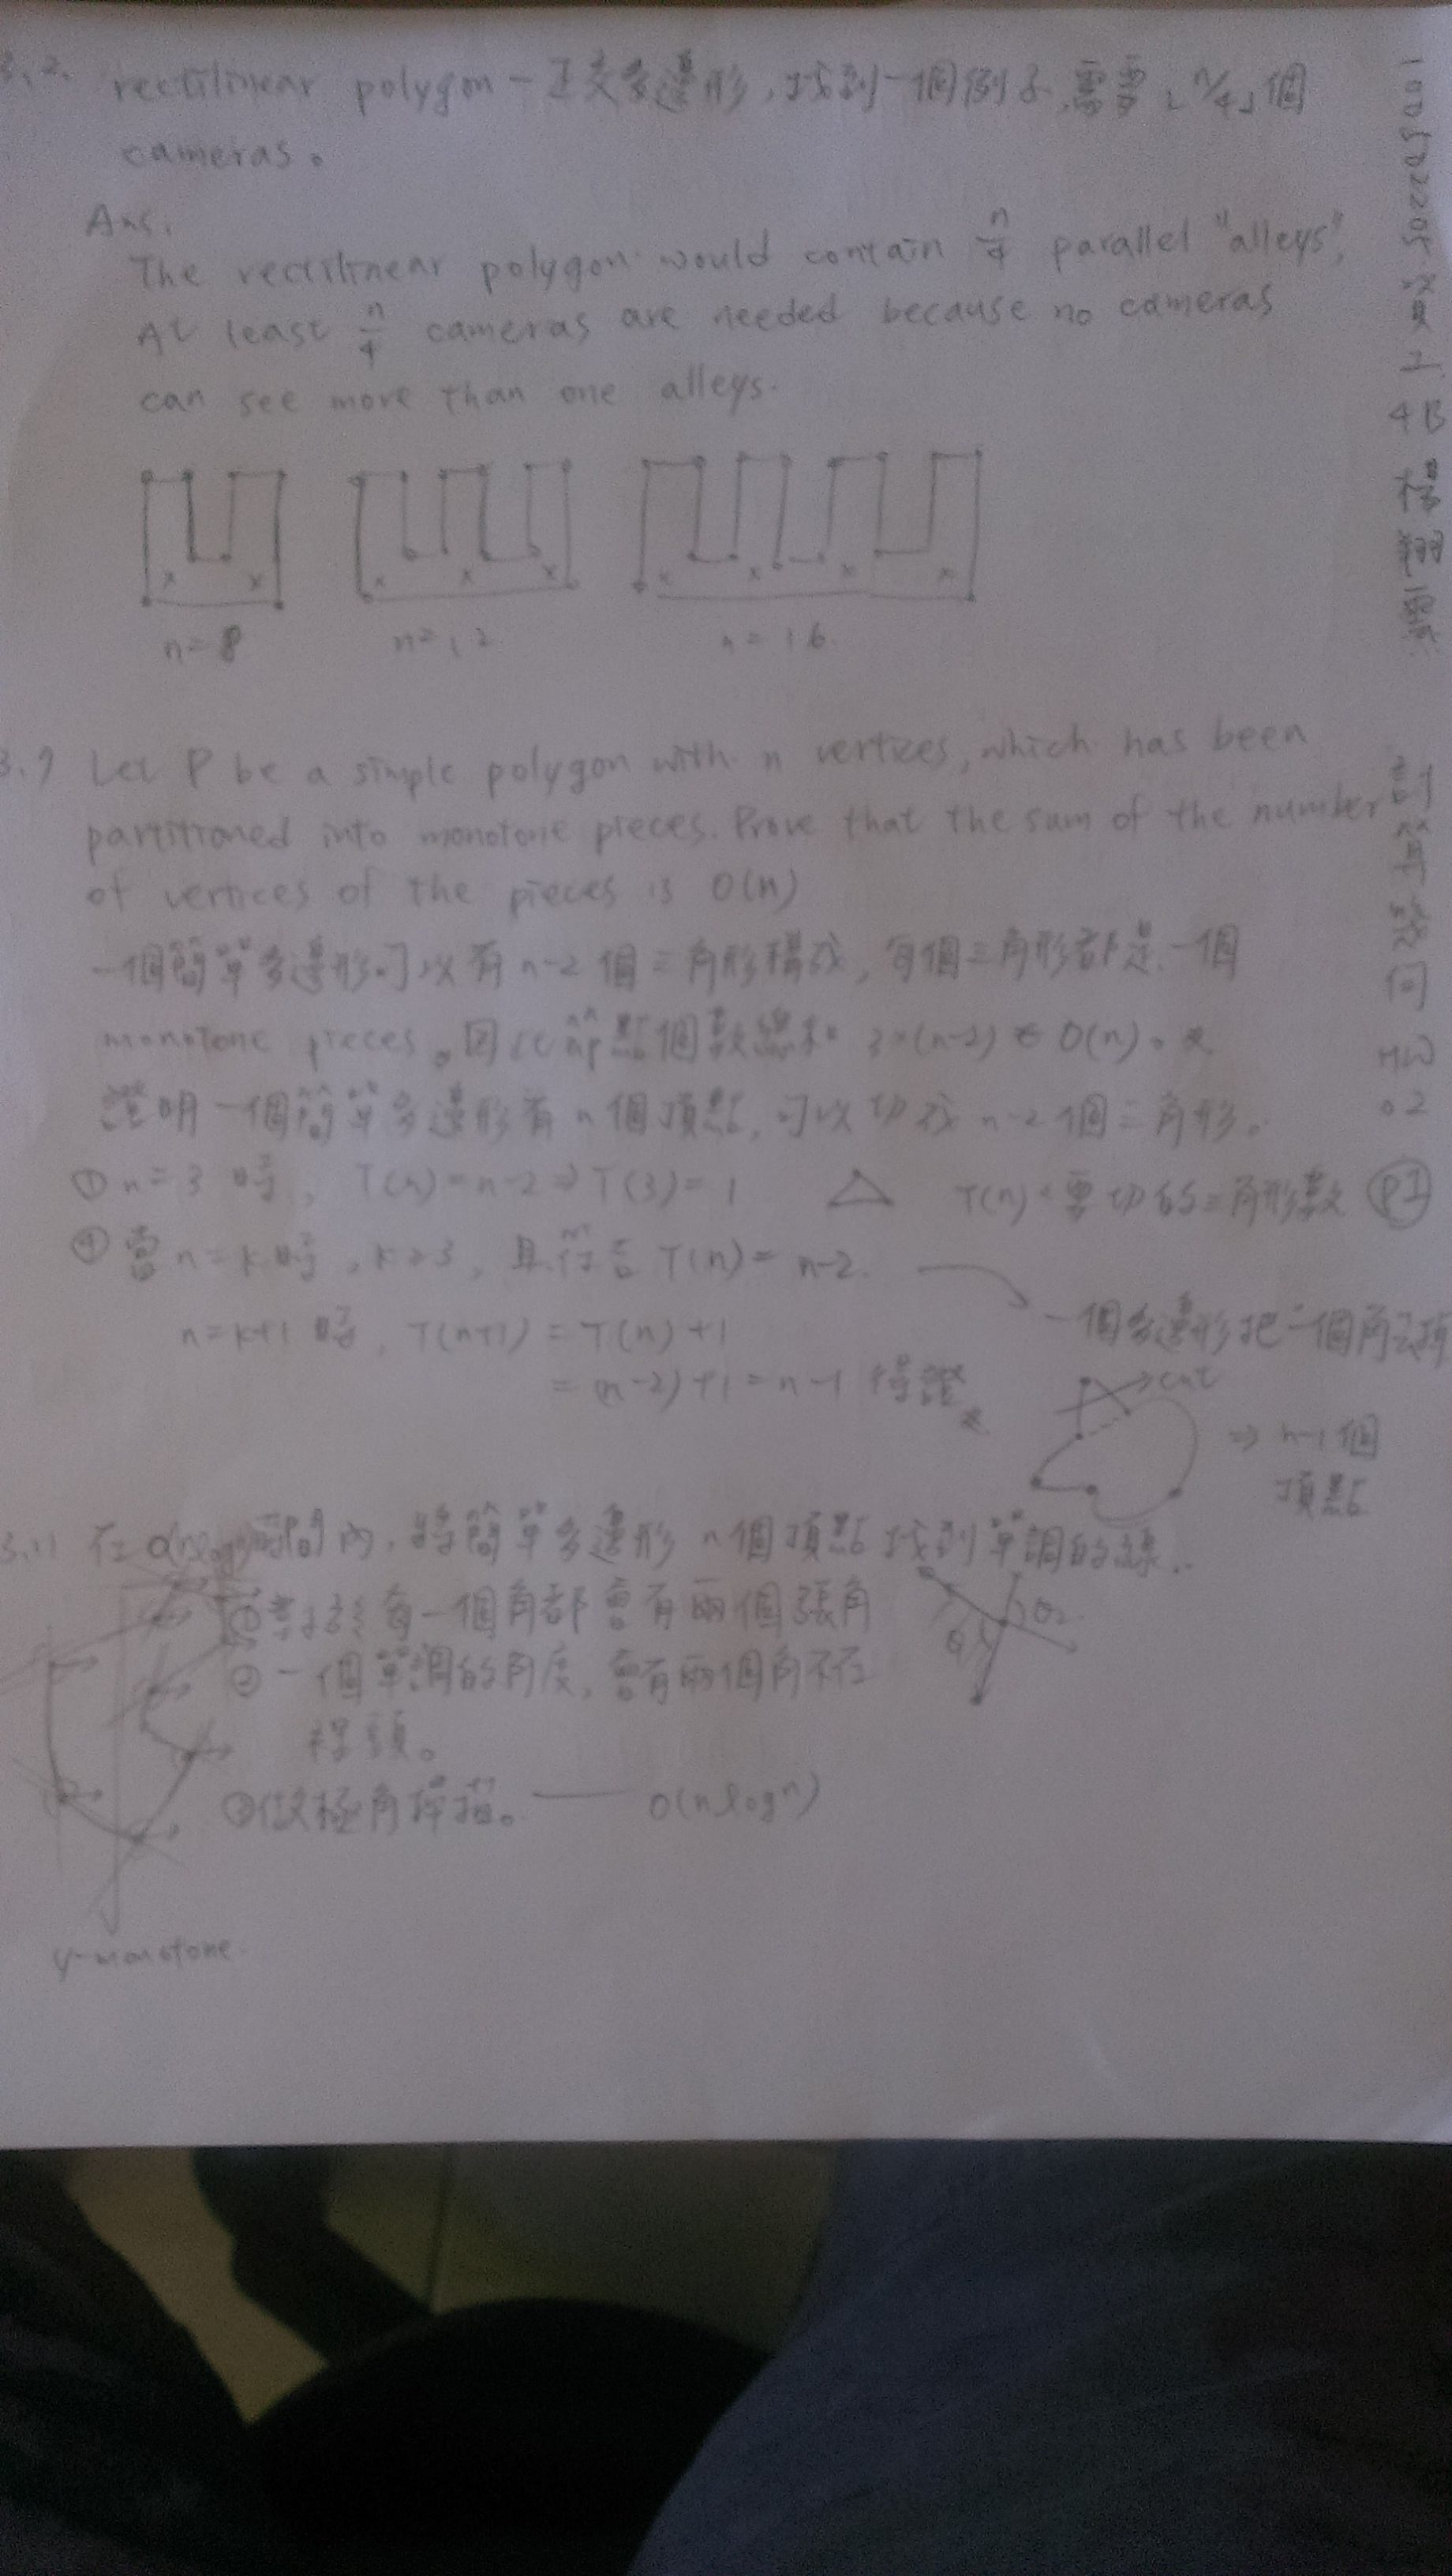 3.2. rectilinear polygon - 正交多邊形,找到一個例子,需要⌊n/4⌋個
cameras。
Ans.
The rectilinear polygon would contain n/4 parallel "alleys",
At least n/4 cameras are needed because no cameras
can see more than one alleys.
x x
x x x
x x x x
n=8 n=12 n=16
3.9 Let P be a simple polygon with n vertices, which has been
partitioned into monotone pieces. Prove that the sum of the number
of vertices of the pieces is O(n)
一個簡單多邊形可以有 n-2 個三角形構成,每個三角形都是一個
monotone pieces。因此節點個數總和 3×(n-2) ∈ O(n)。
證明一個簡單多邊形有 n 個頂點,可以切成 n-2 個三角形。
① n=3 時, T(n)=n-2 ⇒ T(3)=1 T(n): 要切的三角形數 P1
當 n=k 時, k≥3, 且符合 T(n)=n-2.
n=k+1 時, T(n+1) = T(n)+1
一個多邊形把一個角
= (n-2)+1 = n-1 得證
cut
⇒ n-1個
頂點
3.11 在 O(nlogn)時間內,將簡單多邊形 n個頂點 找到單調的線..
①每一個角都會有兩個張角
θ1 θ2
② 一個單調的角度,會有兩個角不在
裡頭。
③做極角掃描。 — O(nlogn)
y-monotone.
100502205 資工 4B
計算幾何 HW 02